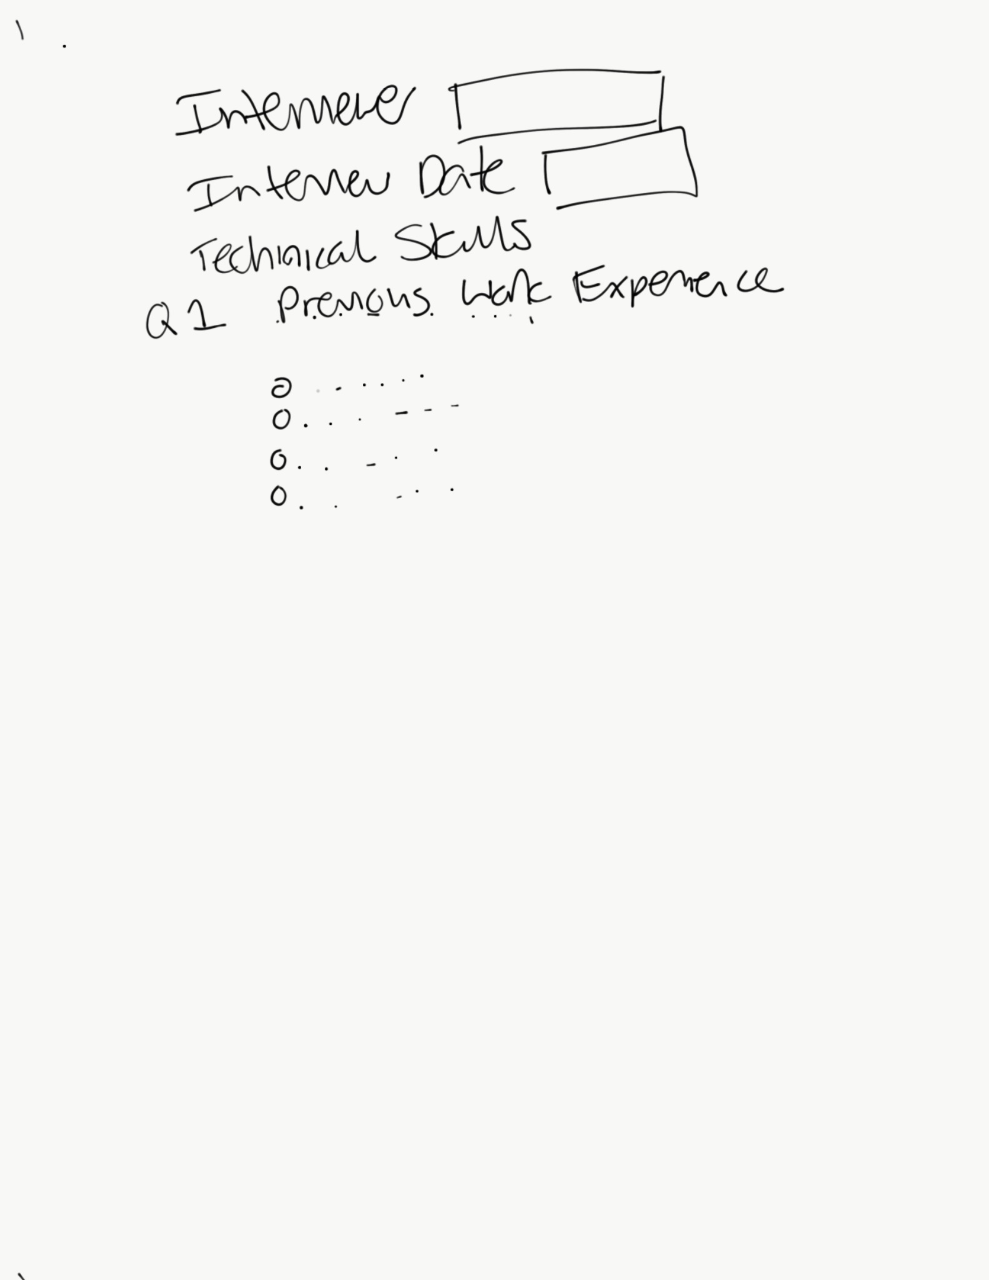 Interviewer
Interview Date
Technical Skills
Q1 Previous Work Experience